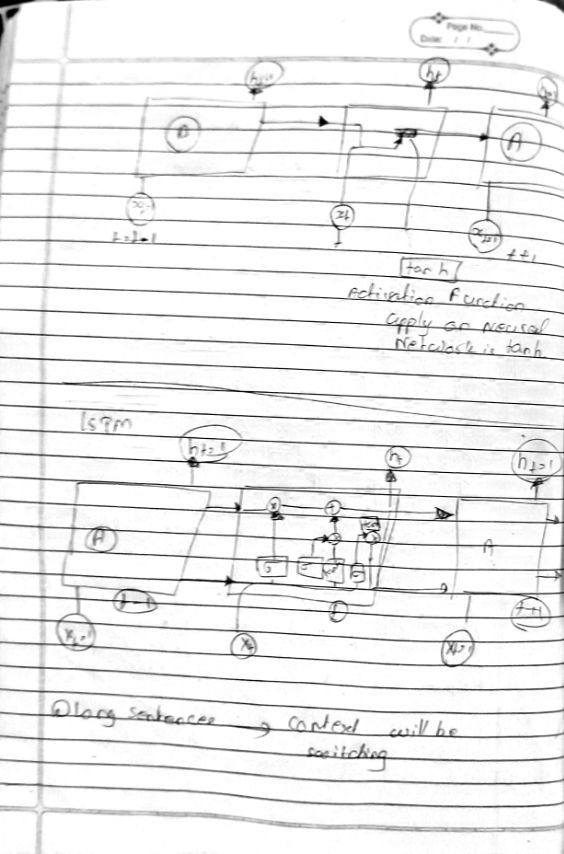 Page No.
Date: / /
ht
A
xt
t=t-1
xt+1
t+1
tanh
Activation Function
apply on Neural
Network is tanh
LSTM
ht-1
ht
ht=1
A
A
t-1
t
t+1
xt-1
xt
long sentences → context will be
switching